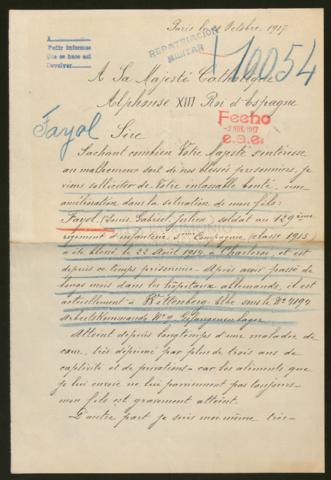 Paris le Octobre 1917
A
Petit informe
Que se hace así
Devolver
REPATRIACIÓN
MILITAR
170054
A Sa Majesté Catholique
Alphonse XIII Roi d'Espagne
Fecho
1917
Fayol
Sire
Sachant combien Votre Majesté s'intéresse
au malheureux sort de nos blessés prisonniers, je
viens solliciter de Votre inlassable bonté, une
amélioration dans la situation de mon fils:
Fayol (Louis Gabriel Julien) soldat au 129ème
régiment d'infanterie, 5me Compagnie (classe 1913)
a été blessé le 22 Août 1914 à Charleroi et est
depuis ce temps prisonnier. Après avoir passé de
longs mois dans les hôpitaux allemands, il est
actuellement à Wittenberg Elbe sous le No 4194
Arbeitskommando No 9 Gefangenenlager
Atteint depuis longtemps d'une maladie de
cœur, très déprimé par plus de trois ans de
captivité et de privations - car les aliments que
je lui envoie ne lui parviennent pas toujours -
mon fils est gravement atteint.
D'autre part je suis moi-même très-